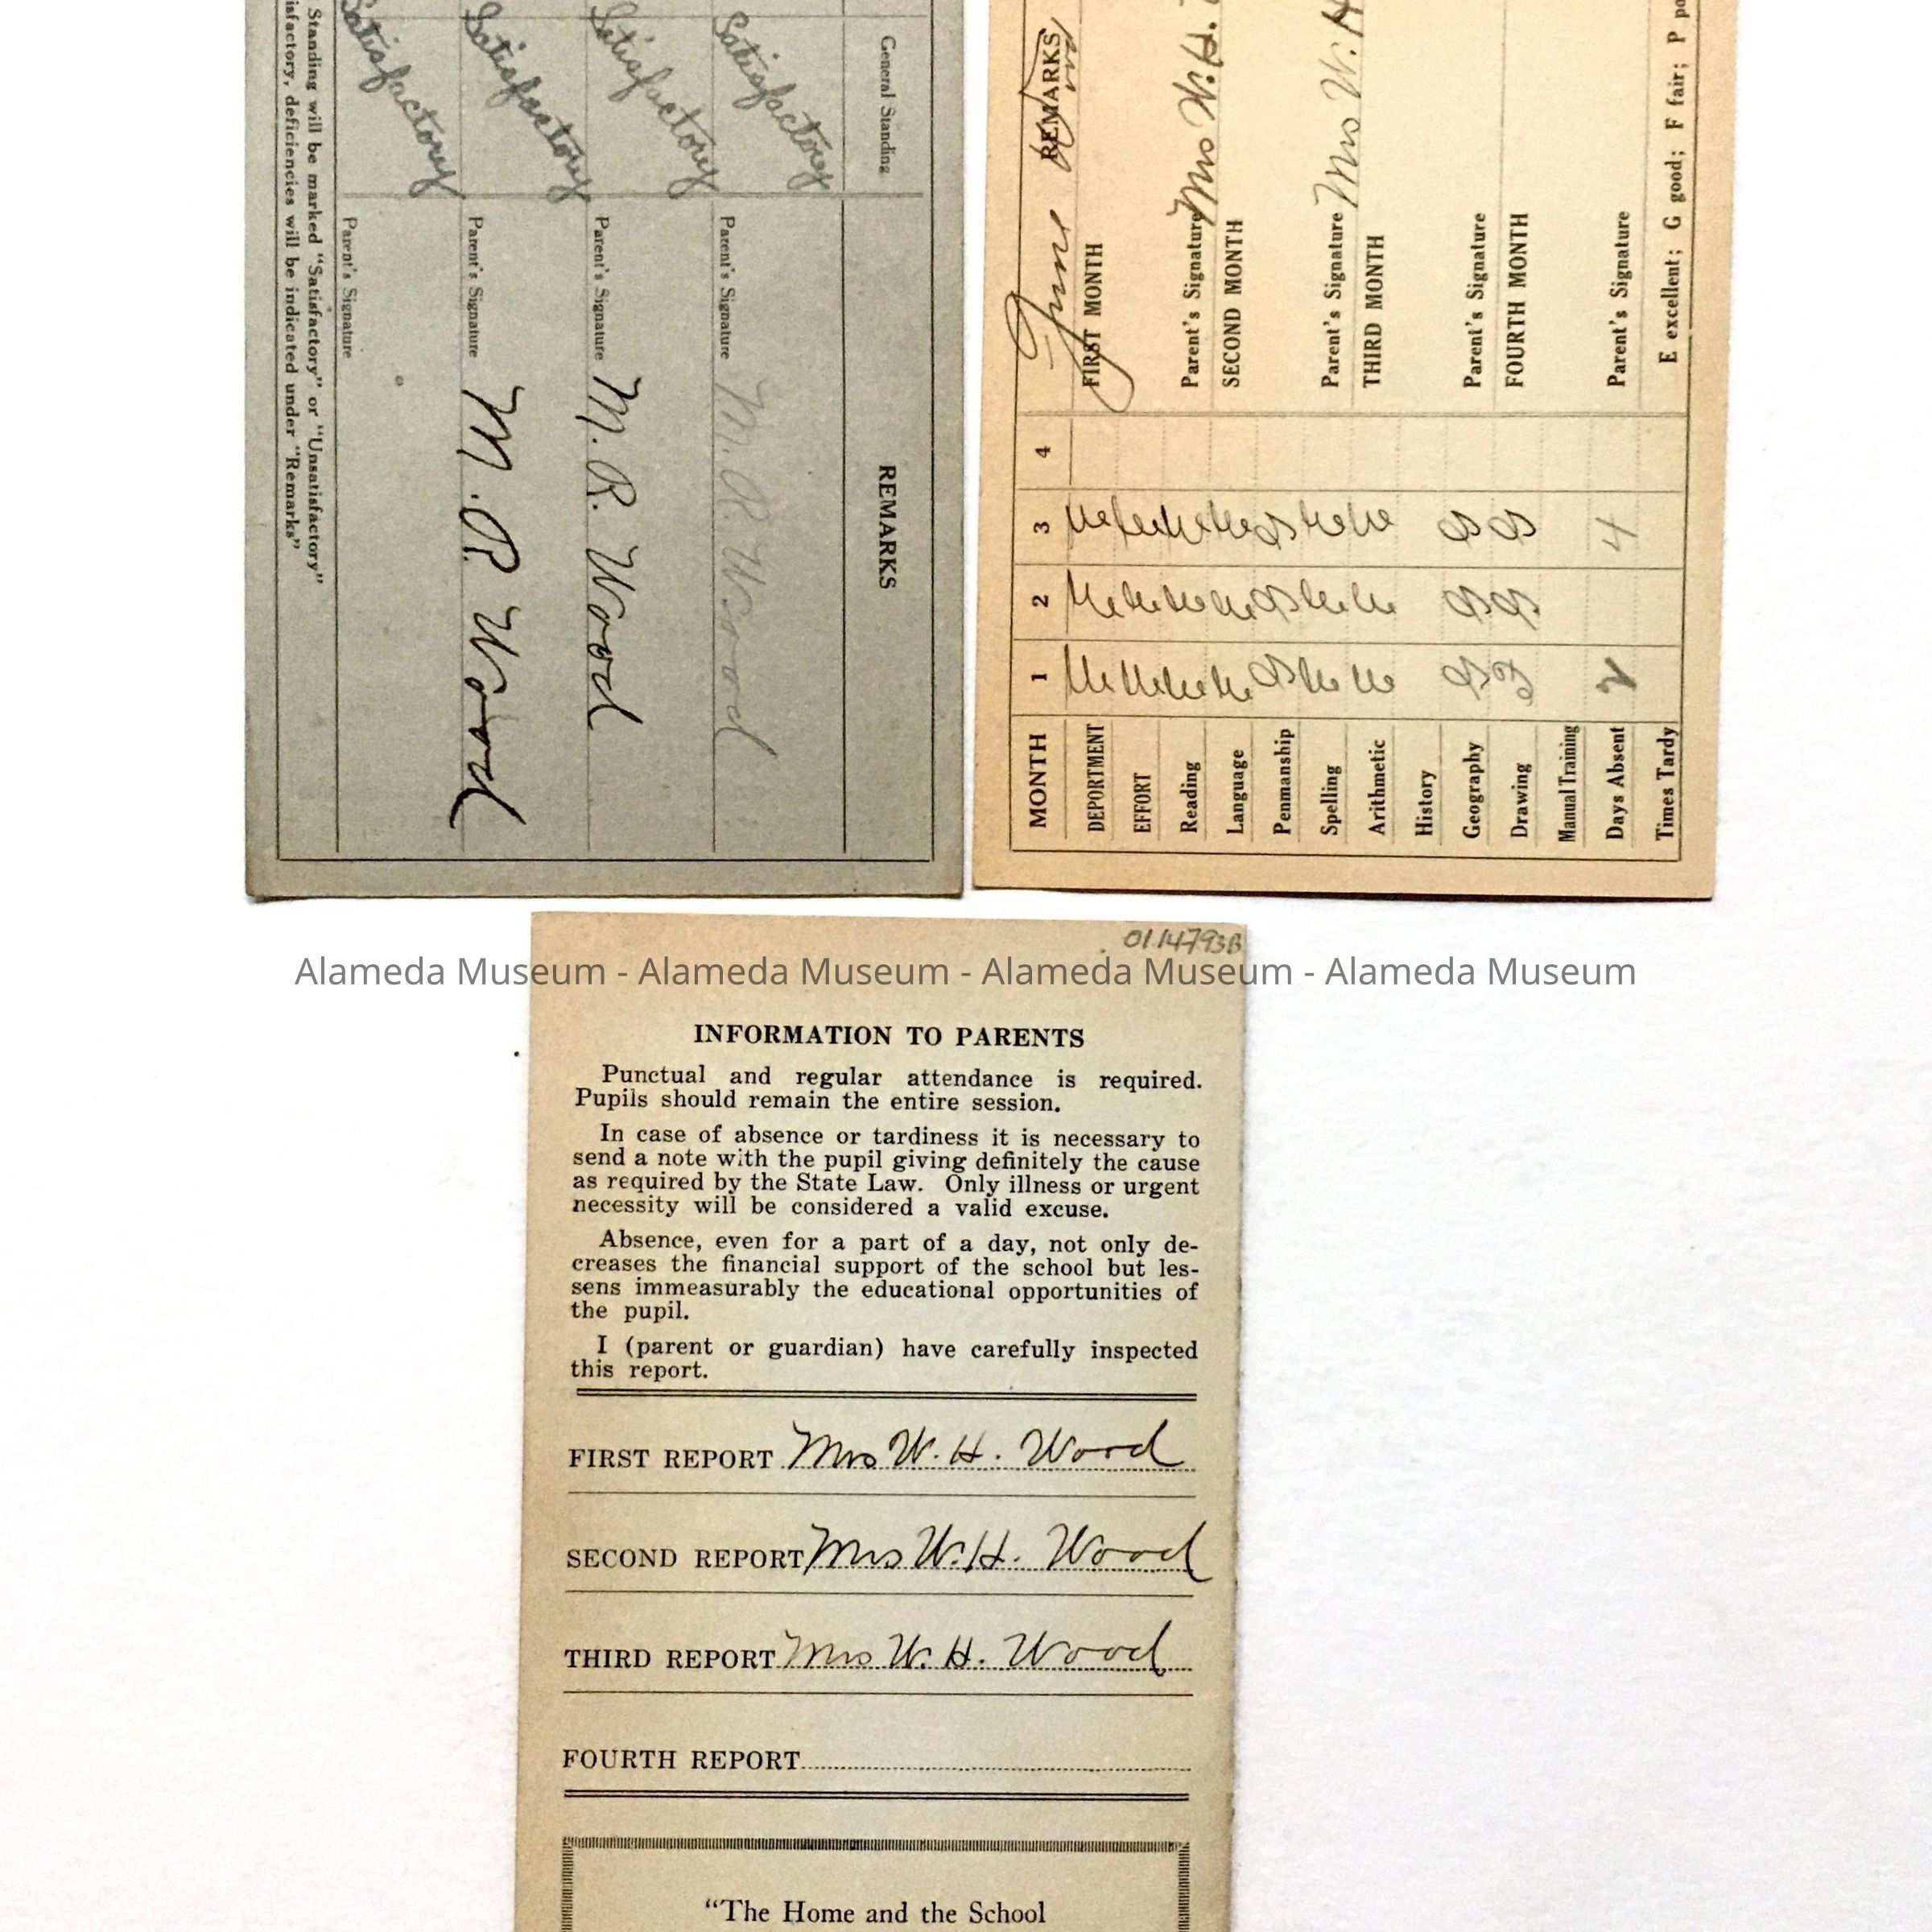 General Standing
REMARKS
Satisfactory
Parent's Signature M. R. Wood
Satisfactory
Parent's Signature M. R. Wood
Satisfactory
Parent's Signature M. R. Wood
Satisfactory
Parent's Signature
Standing will be marked "Satisfactory" or "Unsatisfactory"
deficiencies will be indicated under "Remarks"
MONTH 1 2 3 4 REMARKS
June
DEPORTMENT
FIRST MONTH
EFFORT
Reading
Parent's Signature Mrs W. H.
Language
SECOND MONTH
Penmanship
Spelling
Parent's Signature Mrs W. H
Arithmetic
THIRD MONTH
History
Geography
Parent's Signature
Drawing
FOURTH MONTH
Manual Training
Days Absent 2 4
Parent's Signature
Times Tardy
E excellent; G good; F fair; P
0114793B
Alameda Museum - Alameda Museum - Alameda Museum - Alameda Museum
INFORMATION TO PARENTS
Punctual and regular attendance is required.
Pupils should remain the entire session.
In case of absence or tardiness it is necessary to
send a note with the pupil giving definitely the cause
as required by the State Law. Only illness or urgent
necessity will be considered a valid excuse.
Absence, even for a part of a day, not only de-
creases the financial support of the school but les-
sens immeasurably the educational opportunities of
the pupil.
I (parent or guardian) have carefully inspected
this report.
FIRST REPORT Mrs W. H. Wood
SECOND REPORT Mrs W. H. Wood
THIRD REPORT Mrs W. H. Wood
FOURTH REPORT
"The Home and the School